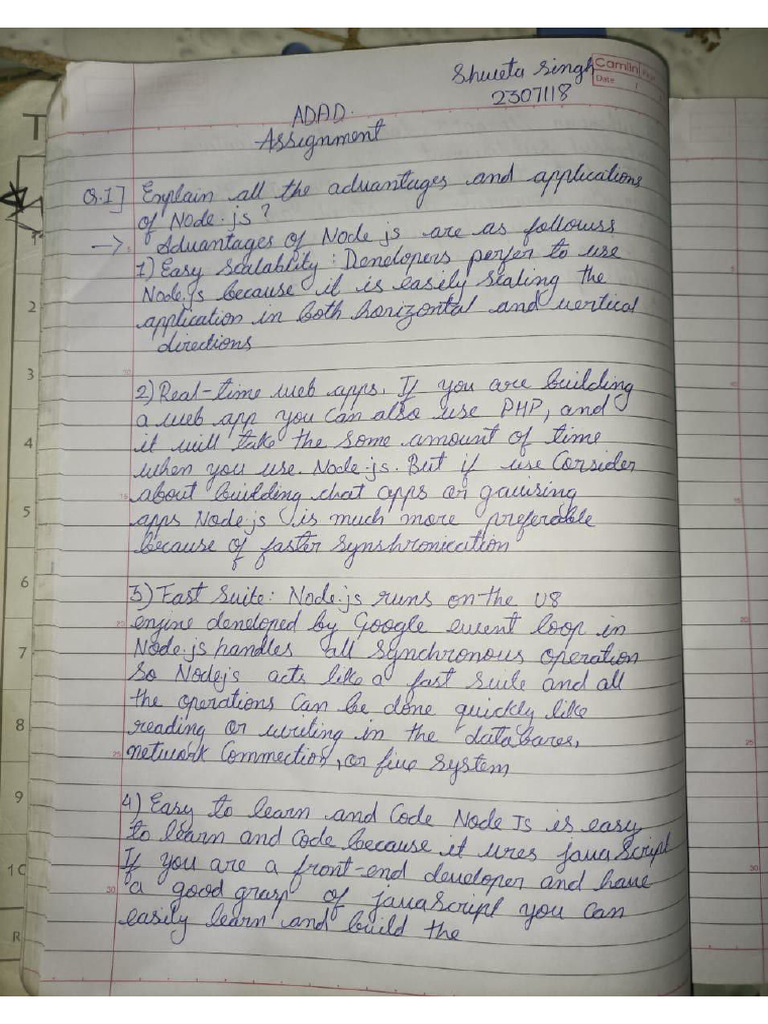 Shweta Singh
Camlin
Date
2307118
ADAD.
Assignment
Q.1] Explain all the advantages and applications
of Node.js?
→ Advantages of Node js are as followss
1) Easy Scalablity: Developers perfer to use
Node.js because it is easily scaling the
application in both horizontal and vertical
directions
2) Real-time web apps. If you are building
a web app you can also use PHP, and
it will take the some amount of time
when you use. Node.js. But if use Corsider
about building chat apps or
apps Node.js is much more preferable
because of faster Synshronication
3) Fast Suite: Node.js runs on the V8
engine developed by Google event loop in
Node.js handles all synchronous operation
So Nodejs acts like a fast suite and all
the operations can be done quickly like
reading or writing in the databares,
network Commection, or five system
4) Easy to learn and Code Node Js is easy
to learn and code because it ures javaScript
If you are a front-end developer and have
a good grasp of javaScript you can
easily learn and build the
T
1
2
3
4
5
6
7
8
9
10
R